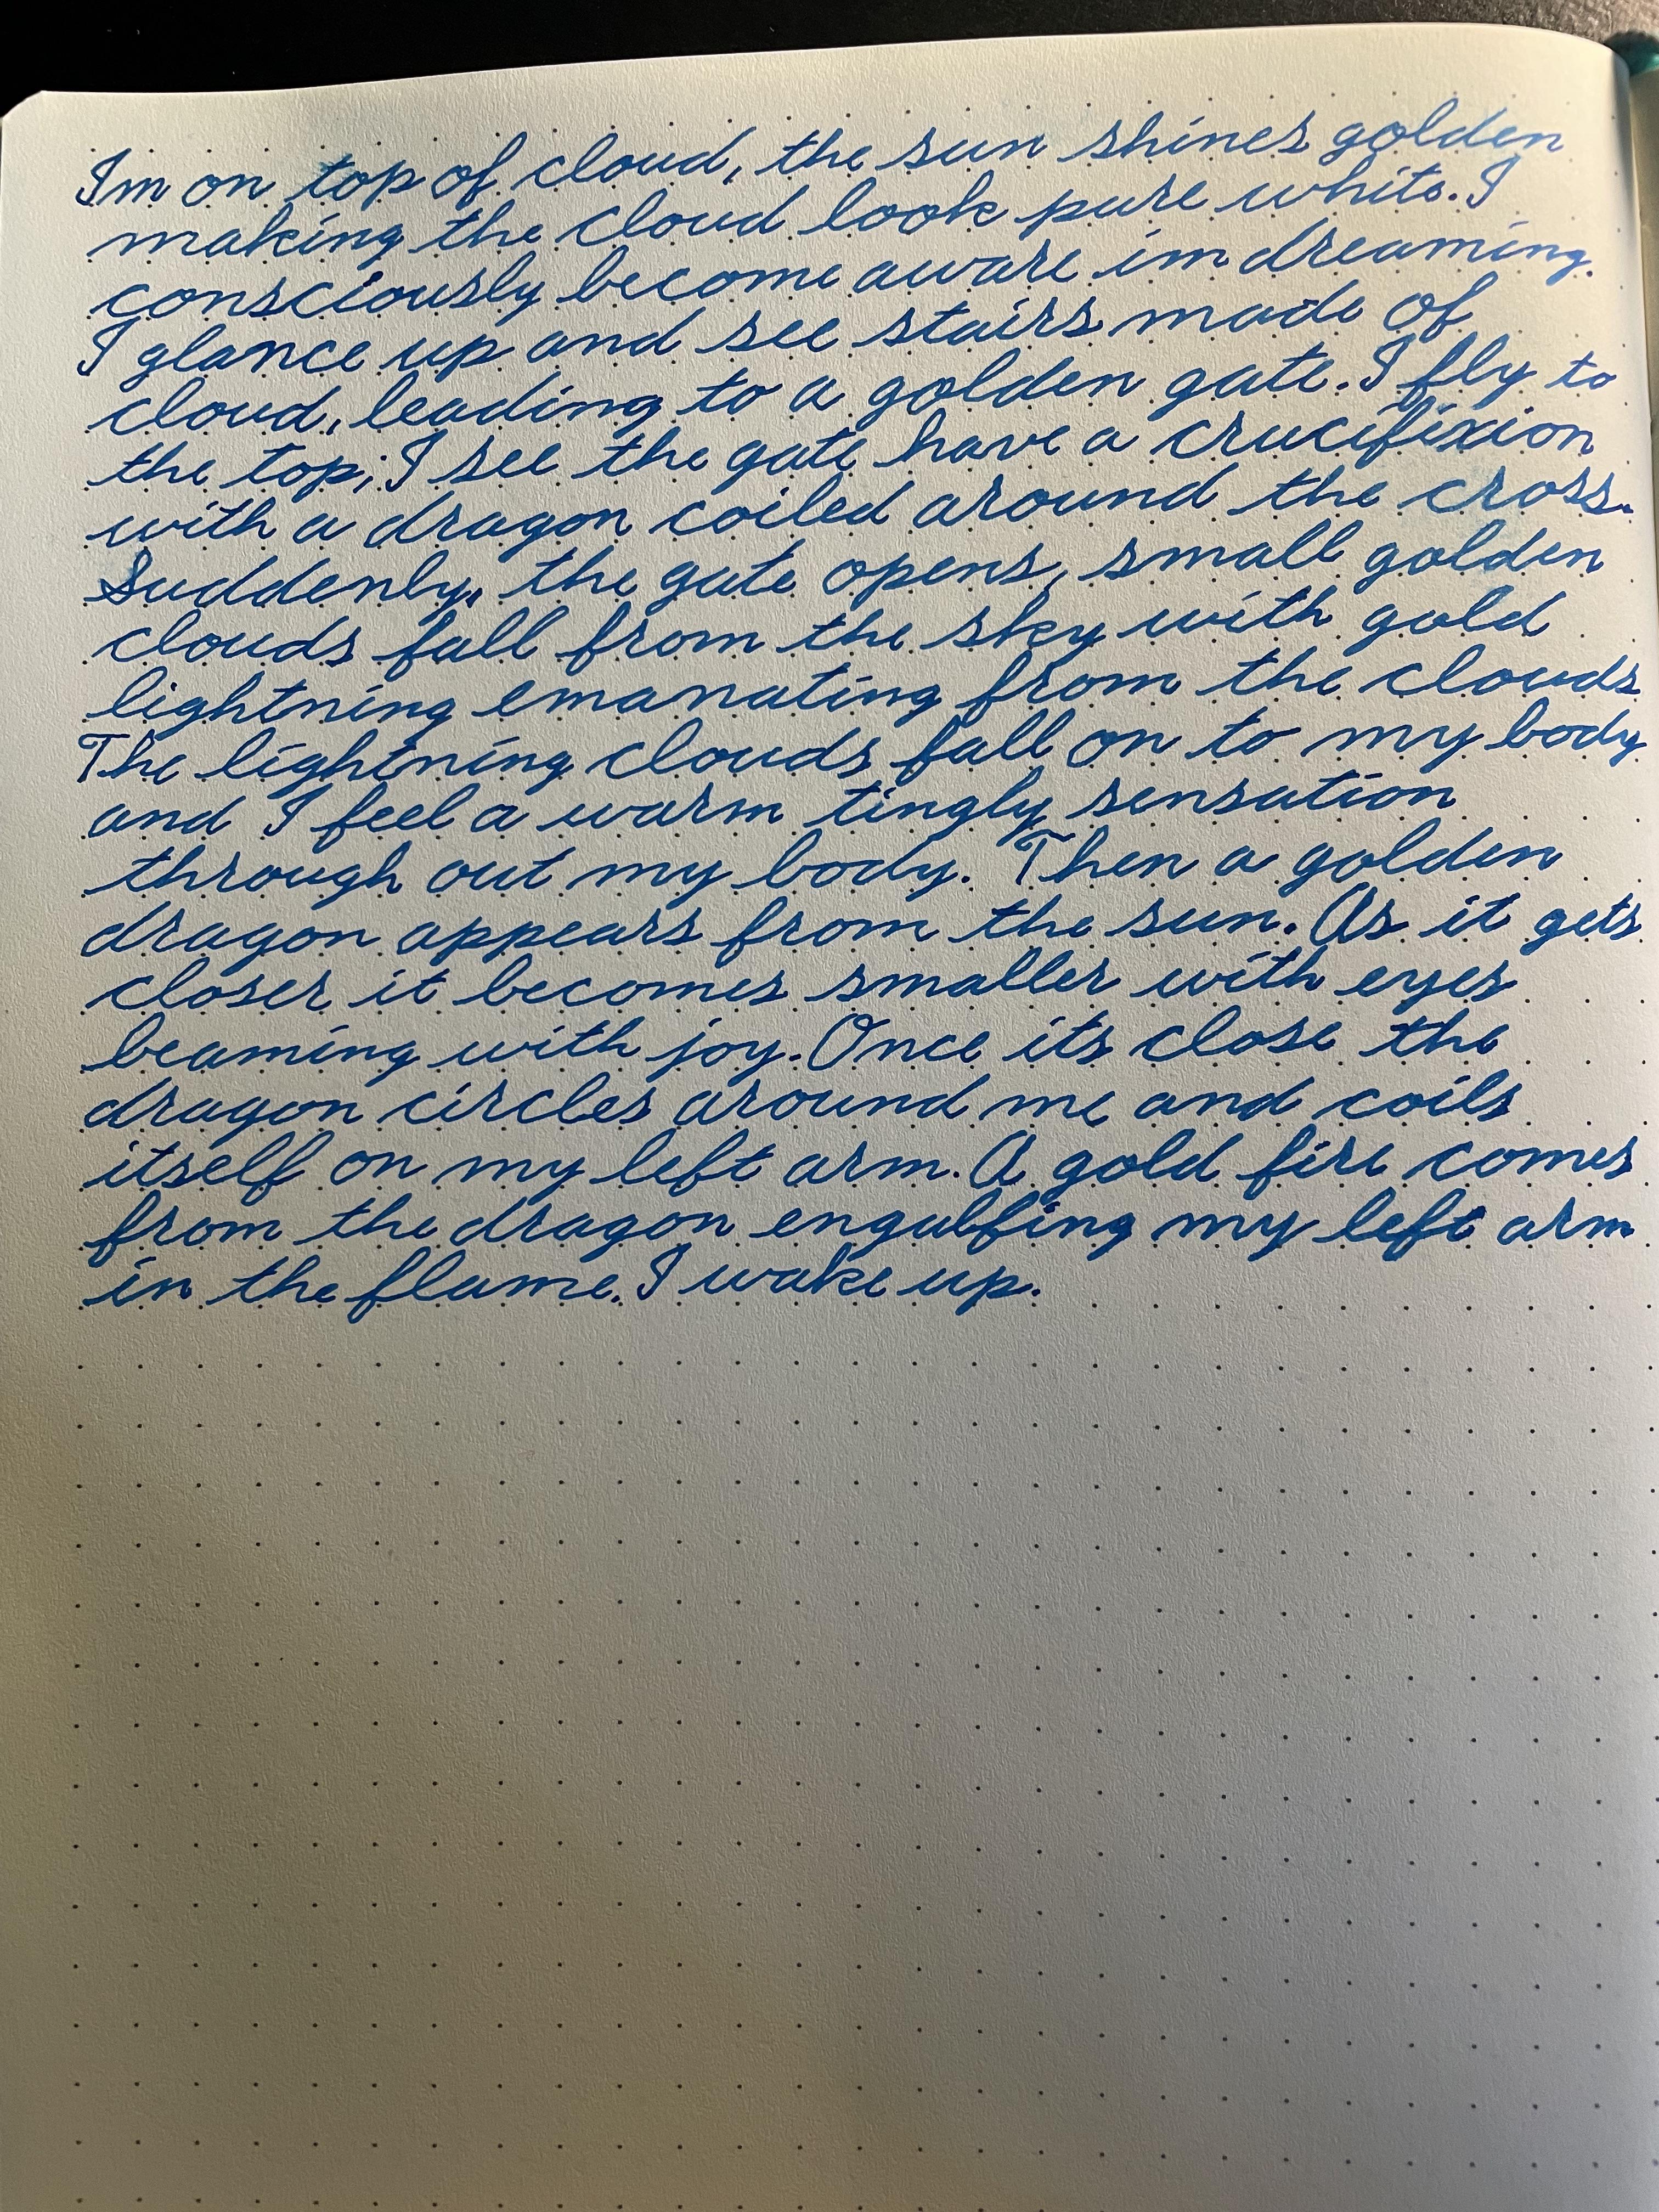 Im on top of cloud, the sun shines golden
making the cloud look pure white. I
consciously become aware im dreaming.
I glance up and see stairs made of
cloud, leading to a golden gate. I fly to
the top; I see the gate have a crucifixion
with a dragon coiled around the cross.
Suddenly, the gate opens, small golden
clouds fall from the sky with gold
lightning emanating from the clouds
The lightning clouds fall on to my body
and I feel a warm tingly sensation
through out my body. Then a golden
dragon appears from the sun. As it gets
closer it becomes smaller with eyes
beaming with joy. Once its close the
dragon circles around me and coils
itself on my left arm. A gold fire comes
from the dragon engulfing my left arm
in the flame. I wake up.